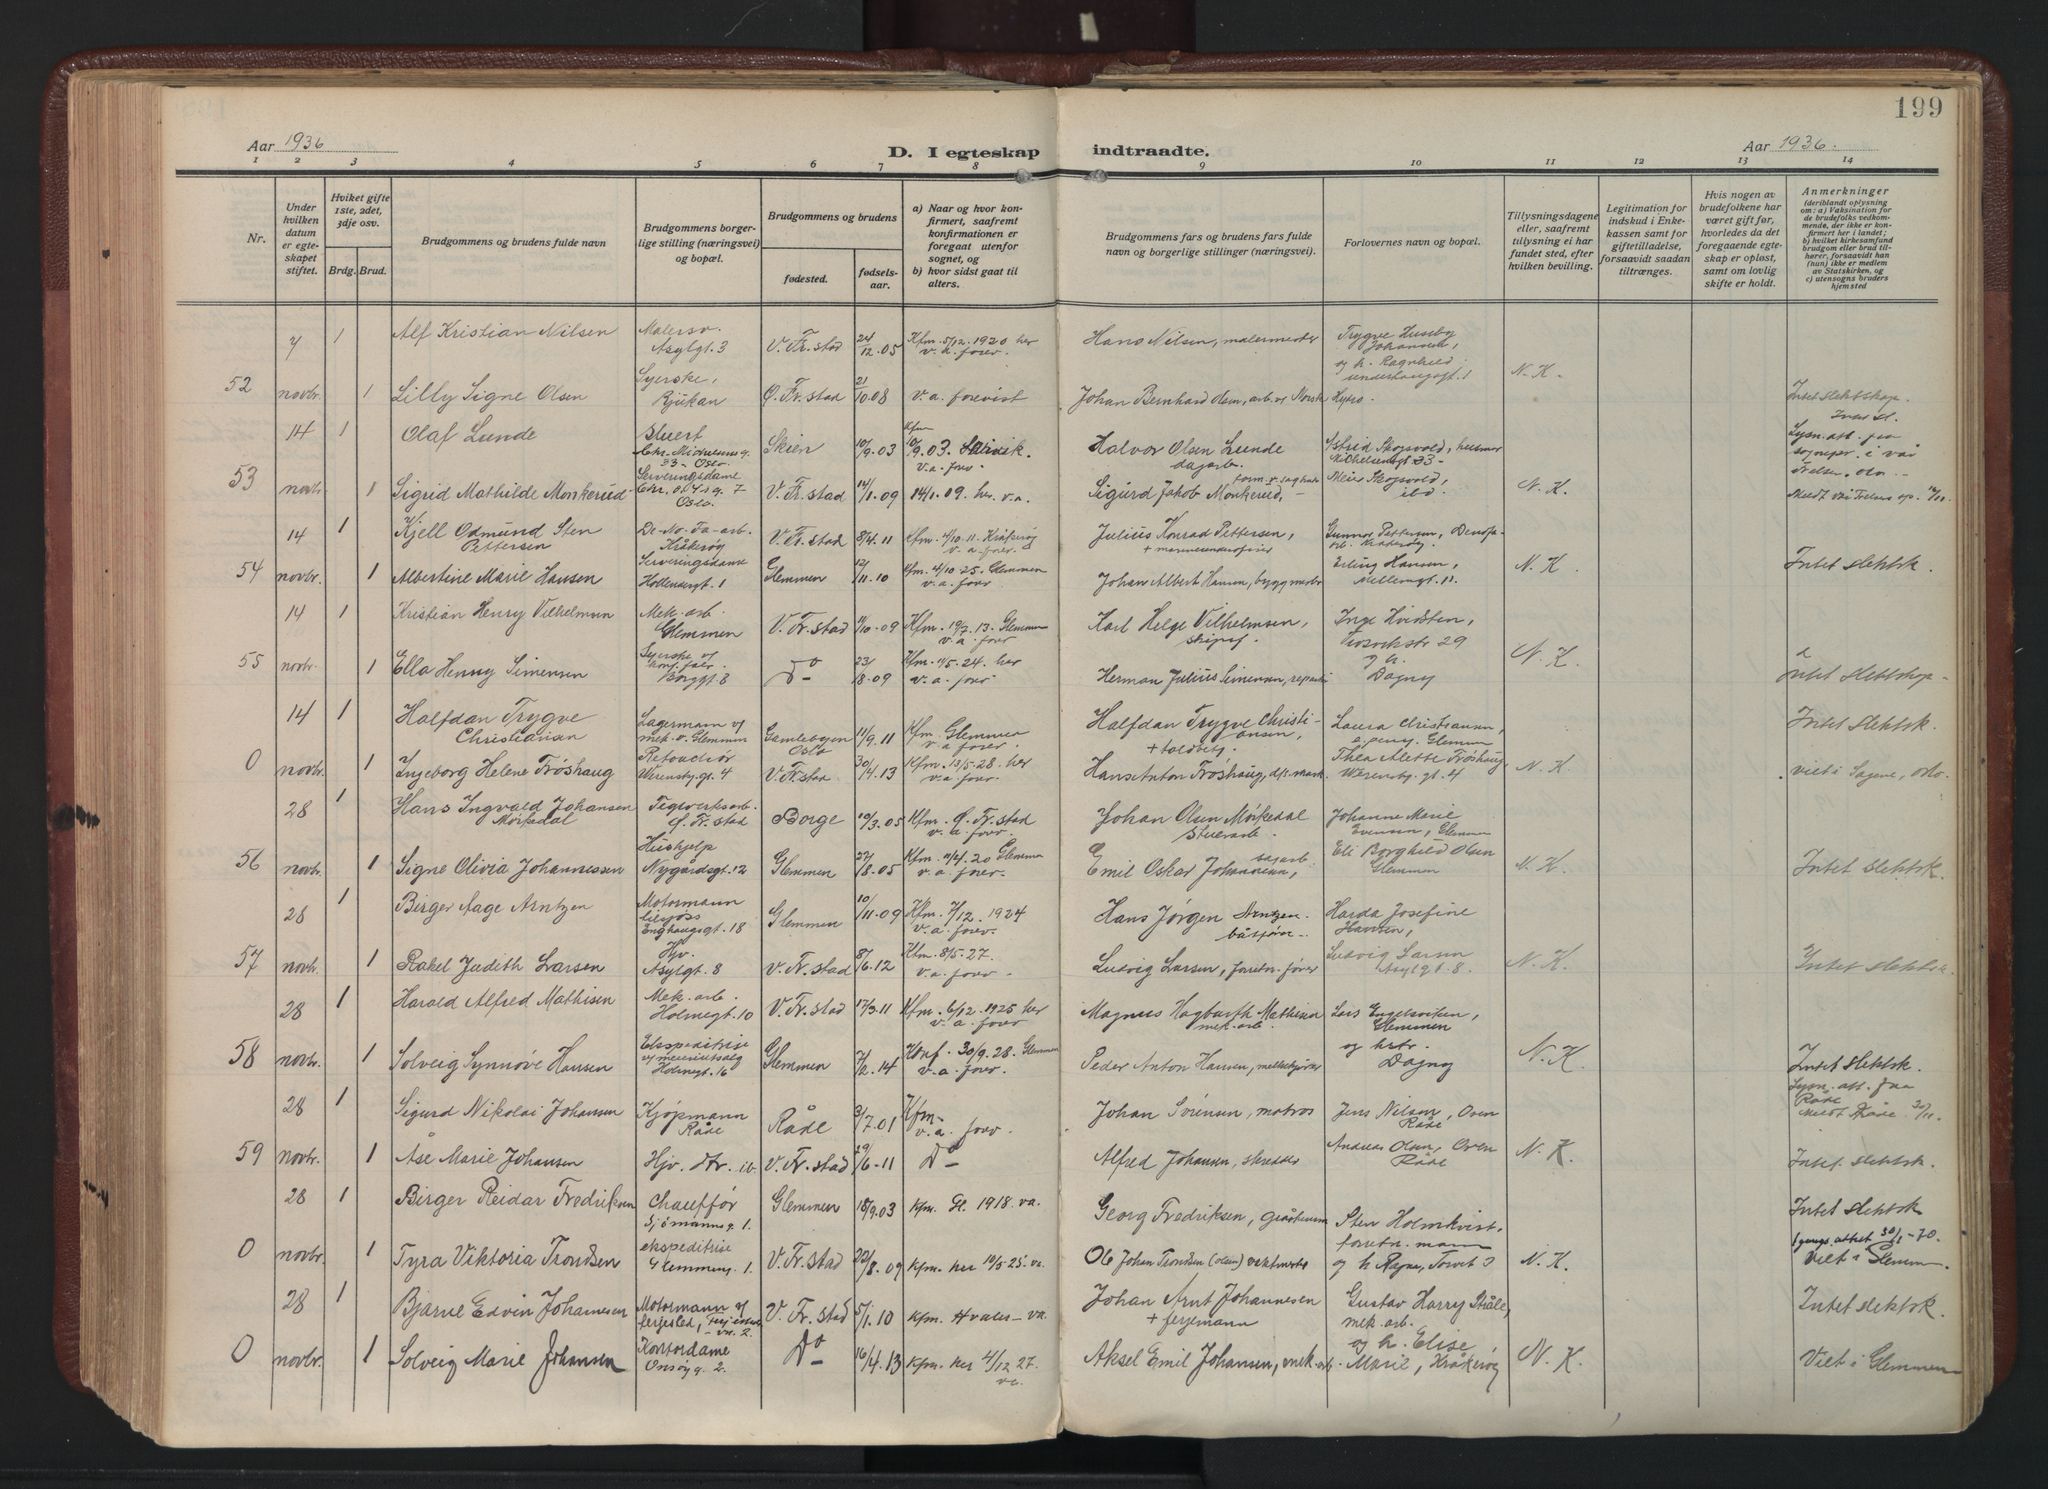 199
Aar 1936
D. I egteskap indtraadte.
Aar 1936.
1 2 3 4 5 6 7 8 9 10 11 12 13 14
Nr.
Under hvilken datum er egteskapet stiftet.
Hviket gifte 1ste, 2det, 3dje osv.
Brdg. Brud.
Brudgommens og brudens fulde navn
Brudgommens borgerlige stilling (næringsvei) og bopæl.
Brudgommens og brudens
fødested.
fødselsaar.
a) Naar og hvor konfirmert, saafremt konfirmationen er foregaat utenfor sognet, og
b) hvor sidst gaat til alters.
Brudgommens fars og brudens fars fulde navn og borgerlige stillinger (næringsvei).
Forlovernes navn og bopæl.
Tillysningsdagene eller, saafremt tillysning ei har fundet sted, efter hvilken bevilling.
Legitimation for indskud i Enkekassen samt for giftetilladelse, forsaavidt saadan tiltrænges.
Hvis nogen av brudefolkene har været gift før, hvorledes da det foregaaende egteskap er opløst, samt om lovlig skifte er holdt.
Anmerkninger (deriblandt oplysning om: a) Vaksination for de brudefolks vedkommende, der ikke er konfirmert her i landet; b) hvilket kirkesamfund brudgom eller brud tilhører, forsaavidt han (hun) ikke er medlem av Statskirken, og c) utensogns bruders hjemsted
7 1 Alf Kristian Nilsen Malersv. Asylgt. 3 V. Fr.stad 24/12.05 Kfm. 5/12.1920 her v. a. forev. Hans Nilsen, malermester Trygve Huseby Johansen, og h. Ragnhild
52 novbr. 1 Lilly Signe Olsen Syerske, Rjukan Ø. Fr.stad 21/10.08 v. a. forevist Johan Bernhard Olsen, arb. v/ Norsk Hydro. N. K. Intet slektskap.
14 1 Olaf Lunde Chr. Michelsensg. 33 - Oslo Skien 10/9.03 Kfm 10/9.03 v. a. forev. Halvor Olsen Lunde dagarb. Astrid Skogsvold,
53 novb. 1 Sigrid Mathilde Monkerud Serveringsdame Oslo. V. Fr.stad 14/1.09 14/1.09. her. v. a. Sigurd Jakob Monkerud, Skogsvold, ibd. N. K.
14 1 Kjell Odmund Sten Pettersen De-No-Fa-arb. Kråkerøy V. Fr.stad 8/4.11 Kfm. Kråkerøy v. a. forev. Julius Konrad Pettersen, Gunnar Pettersen,
54 novbr. 1 Albertine Marie Hansen Serveringsdame Hollendergt. 1 Glemmen 12/11.10 Kfm. 4/10 25. Glemmen v. a. forev. Johan Albert Hansen, byggmester Erling Hansen, N. K. Intet slektsk.
14 1 Kristian Henry Vilhelmsen Mek. arb. Glemmen V. Fr.stad Kfm. Glemmen v. a. forev Karl Helge Vilhelmsen, Inge Hvidsten,
55 novbr. 1 Ella Henny Simensen Syerske Borggt. 8 Do- 23/8.09 Kfm. 11/5.24. her v. a. forev Herman Julius Simensen, og h. Dagny N. K. Intet slektskap -
14 1 Halfdan Trygve Christiansen Lagermann v/ mek. v. Glemmen Gamlebyen Oslo 11/9.11 Kfm. Glemmen v. a. forev. Halfdan Trygve Christiansen, + toldbetj. Laura Christiansen, Glemmen Intet slektsk.
0 novbr. 1 Ingeborg Helene Frøshaug Retouchør Werenskg.gt. 4 V. Fr.stad 30/4.13 Kfm. 13/5.28. her v. a. forev. Hans Anton Frøshaug, Thea Alette Frøshaug, N. K. viet i Sagene, Oslo.
28 1 Hans Ingvald Johansen Mørkedal Teglverksarb. Ø. Fr.stad Borge 10/3.05 Kfm. Ø. Fr.stad v. a. forev. Johan Olsen Mørkedal Johanne Marie Evensen, Glemmen
56 novbr. 1 Signe Olivia Johannessen Hushjelp Nygårdsgt. 12 Glemmen 27/8.05 Kfm. 11/4.20 Glemmen v. a. forev. Emil Oskar Johannessen, Eli Borghild Olsen Glemmen N. K. Intet slektsk.
28 1 Birger Aage Arntzen Motormann Enghaugsgt. 18 Glemmen 10/11.09 Kfm. 7/12.1924 v. a. forev. Hans Jørgen Arntzen båtfører Harda Josefine Hansen,
57 novbr. 1 Rakel Judith Larsen Hjv. Asylgt. 8 V. Fr.stad 8/6.12 Kfm. 8/5.27. v. a. forev. Ludvig Larsen, forretn. fører Ludvig Larsen Asylgt. 8. N. K. Intet slektsk.
28 1 Harald Alfred Mathisen Mek. arb. Holmegt. 10 V. Fr.stad 17/3.11 Kfm. 6/12.1925 her v. a. forev Magnus Hagbarth Mathisen mek. arb. Glemmen
58 novbr. 1 Solveig Synnøve Hansen Ekspeditrise v/ meieriutsalg Holmegt. 16 Glemmen 7/2.14 Konf. 30/9.28. Glemmen v. a. forev. Peder Anton Hansen, melkekjører og hstr. Dagny N. K. Intet slektsk.
28 1 Sigurd Nikolai Johansen Kjøpmann Råde Råde 3/7.01 Kfm- v. a. forev. Johan Sörensen, matros Jens Nilsen, Oven Råde Lysn. att. fra Råde Meldt Råde 30/11.
59 novbr. 1 Åse Marie Johansen Hjv. dtr. ib. V. Fr.stad 29/6-11 Do- Alfred Johansen, skredder Andreas Olsen, Oven Råde N. K. Intet slektsk.
28 1 Birger Reidar Fredriksen Chauffør Sjömannsg. 1. Glemmen 18/9.03 Kfm. Gl. 1918. va. Georg Fredriksen, Sten Holmkvist, forretn. mann Intet slektsk
0 novbr. 1 Tyra Viktoria Trondsen ekspeditrise Glemmeng. 1. V. Fr.stad 22/8.09 Kfm. her 10/5-25. va. Ole Johan Trondsen (Olsen) vektmester og h Ragna, Torvet 3 N. K. Viet i Glemm.
28 1 Bjarne Edvin Johannesen Motormann v/ fergesled, V. Fr.stad 5/1.10 Kfm. Hvaler - va. Johan Arnt Johannesen + fergemann Gustav Harry Stråle, mek. arb. Intet slektsk.
0 novbr. 1 Solveig Marie Johansen Kontordame Onsøyg. 2. Do- 16/4.13 Kfm. her 4/12 27. va. Aksel Emil Johansen, mek. arb. og h. Elise Marie, Kråkerøy N. K. Viet i Glemmen